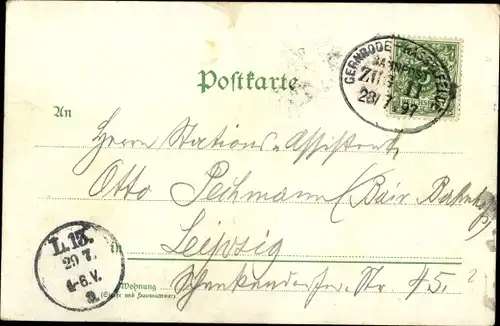 Postkarte
GERNRODE-HASSELFELDE
BAHNPOST
ZUG 11
29/7 97
An
Herrn Stations-Assistent
Otto Pechmann (Bair. Bahnhof)
in Leipzig
Wohnung
(Straße und Hausnummer)
Schenkendorf Str. 45 2
L.13.
29 7.
4-6.V.